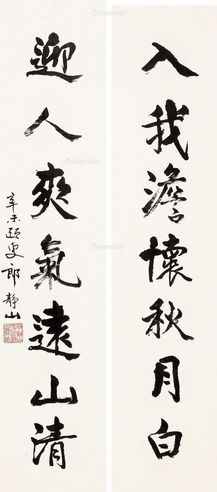 入我澹懷秋月白
迎人爽氣遠山清
辛未 郎靜山